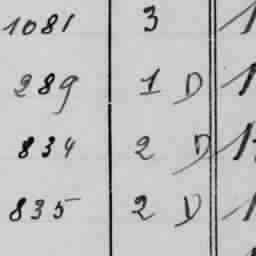 1081 3
289 1 D
834 2 D
835 2 D